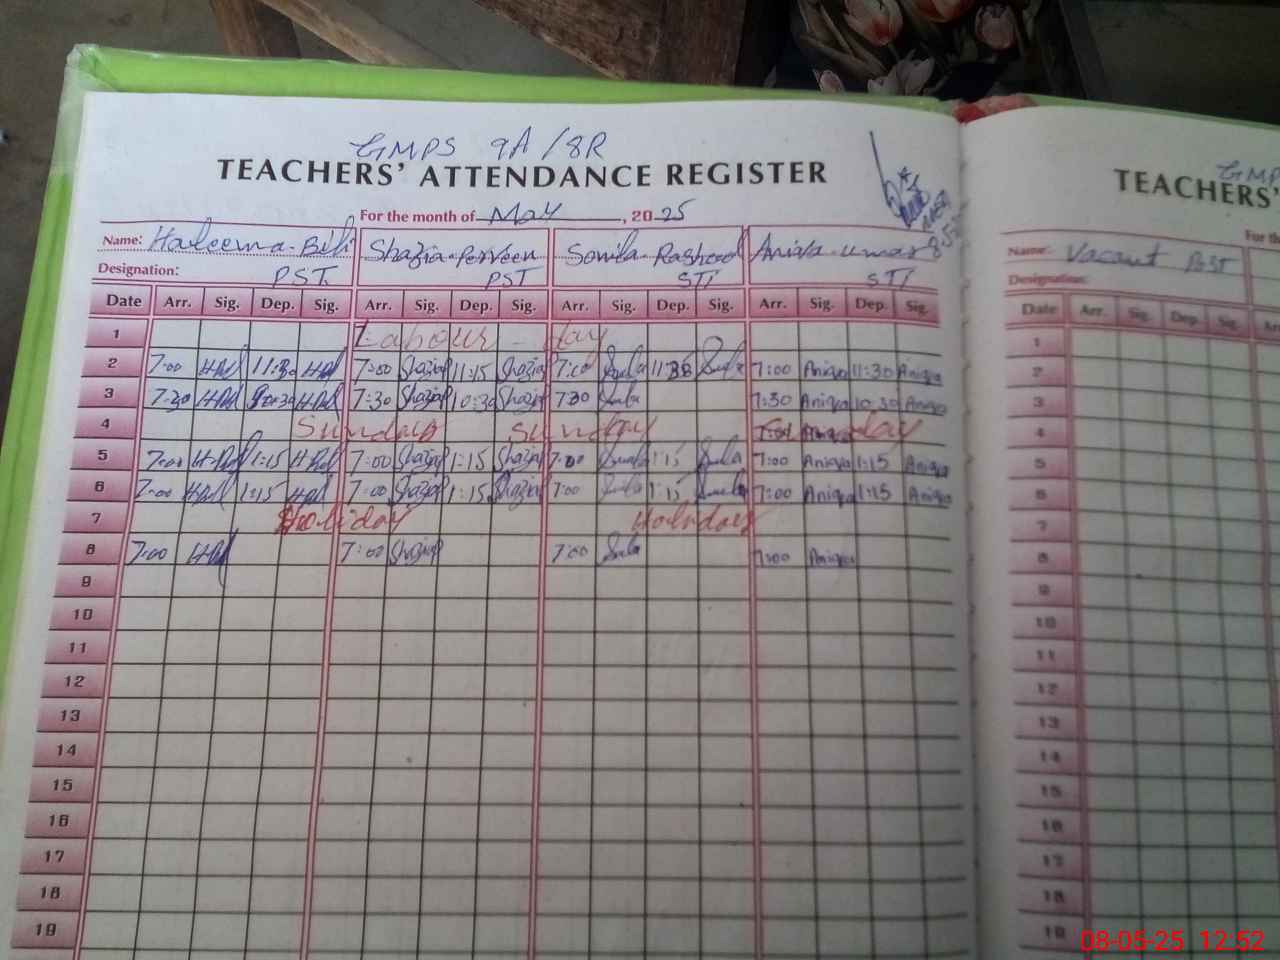 GMPS 9A/8R
TEACHERS' ATTENDANCE REGISTER
For the month of May, 2025
Name: Haleema-Bibi Shazia-Perveen Sonila-Rasheed Aniqa-umar
Designation: PST. PST STI STI
Date Arr. Sig. Dep. Sig. Arr. Sig. Dep. Sig. Arr. Sig. Dep. Sig. Arr. Sig. Dep. Sig.
1 Labour-day
2 7:00 11:30 7:00 Shazia 11:15 Shazia 7:00 7:00 Aniqa 11:30 Aniqa
3 7:30 7:30 Shazia 10:30 Shazia 7:30 7:30 Aniqa 10:30 Aniqa
4 Sunday Sunday Sunday
5 7:00 1:15 7:00 Shazia 1:15 Shazia 7:00 1:15 7:00 Aniqa 1:15 Aniqa
6 7:00 1:15 7:00 Shazia 1:15 Shazia 7:00 1:15 7:00 Aniqa 1:15 Aniqa
7 Holiday Holiday
8 7:00 7:00 Shazia 7:00 7:00 Aniqa
9
10
11
12
13
14
15
16
17
18
19
GMPS
TEACHERS'
For the
Name: Vacant Post
Designation:
Date Arr. Sig. Dep. Sig. Arr.
1
2
3
4
5
6
7
8
9
10
11
12
13
14
15
16
17
18
19
08-05-25 12:52